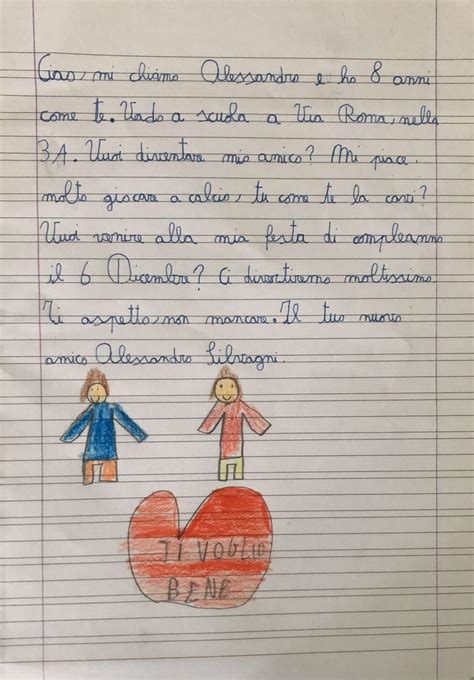 Ciao, mi chiamo Alessandro e ho 8 anni
come te. Vado a scuola a Via Roma, nella
3A. Vuoi diventare mio amico? Mi piace
molto giocare a calcio, tu come te la cavi?
Vuoi venire alla mia festa di compleanno
il 6 Dicembre? Ci divertiremo moltissimo.
Ti aspetto, non mancare. Il tuo nuovo
amico Alessandro Silvagni.
TI VOGLIO
BENE